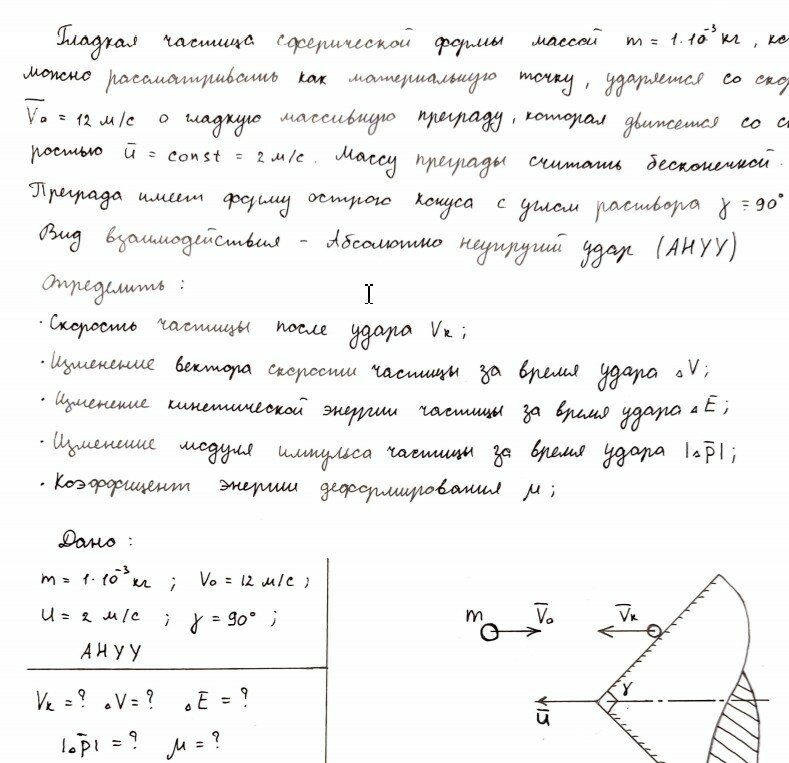 Гладкая частица сферической формы массой m = 1·10⁻³ кг,
можно рассматривать как материальную точку, ударяется со
V̅₀ = 12 м/с о гладкую массивную преграду, которая движется со
ростью u̅ = const = 2 м/с. Массу преграды считать бесконечной.
Преграда имеет форму острого конуса с углом раствора γ = 90°
Вид взаимодействия - Абсолютно неупругий удар (АНУУ)
Определить :
· Скорость частицы после удара Vк ;
· Изменение вектора скорости частицы за время удара △V;
· Изменение кинетической энергии частицы за время удара △E̅ ;
· Изменение модуля импульса частицы за время удара |△p̅| ;
· Коэффицент энергии деформирования μ ;
Дано :
m = 1·10⁻³ кг ; V₀ = 12 м/с ;
u = 2 м/с ; γ = 90° ;
АНУУ
Vк = ? △V = ? △E̅ = ?
|△p̅| = ? μ = ?
m V̅₀ V̅к
γ
u̅